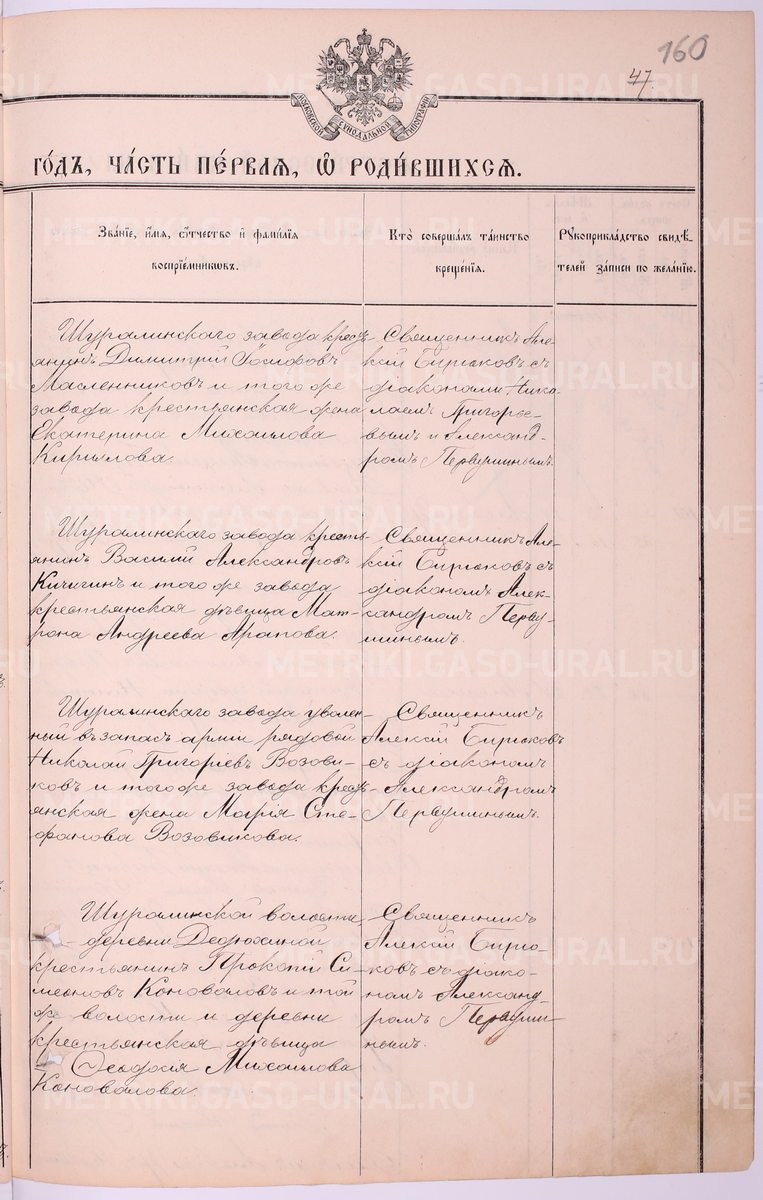 160
47.
МОСКОВСКОЙ СѴНОДАЛЬНОЙ ТИПОГРАФІИ
ГО́ДЪ, ЧА́СТЬ ПЕ́РВАѦ, Ѡ҆ РОДИ́ВШИХСѦ.
Зва́нїе, и҆́мѧ, ѻ҆́тчество и҆ фамѝлїѧ
воспрїе́мникѡвъ.
Кто̀ соверша́лъ та́инство
креще́нїѧ.
Рꙋкоприкла́дство свидѣ́-
телей за́писи по жела́нїю.
Шуралинскаго завода крест-
янинъ Димитрій Іосифовъ
Масленниковъ и того же
завода крестьянская жена
Екатерина Михаилова
Кирилова.
Священникъ Але-
ксій Бирюковъ съ
діаконами Нико-
лаемъ Григорье-
вымъ и Александ-
ромъ Первушинымъ.
Шуралинскаго завода кресть-
янинъ Василій Александровъ
Кичигинъ и того же завода
крестьянская дѣвица Мат-
рона Андреева Арапова.
Священникъ Але-
ксій Бирюковъ съ
діакономъ Алек-
сандромъ Перву-
шинымъ.
Шуралинскаго завода уволен-
ный въ запасъ арміи рядовой
Николай Григоріевъ Возови-
ковъ и того же завода крест-
янская жена Марія Сте-
фанова Возовикова.
Священникъ
Алексій Бирюковъ
съ діакономъ
Александромъ
Первушинымъ.
Шуралинской волости,
деревни Дедюхиной
крестьянинъ Прокопій Си-
меоновъ Коноваловъ и той
же волости и деревни
крестьянская дѣвица
Ѳеодосія Михаилова
Коновалова.
Священникъ
Алексій Бирю-
ковъ съ діако-
номъ Александ-
ромъ Первуши-
нымъ.
METRIKI.GASO-URAL.RU